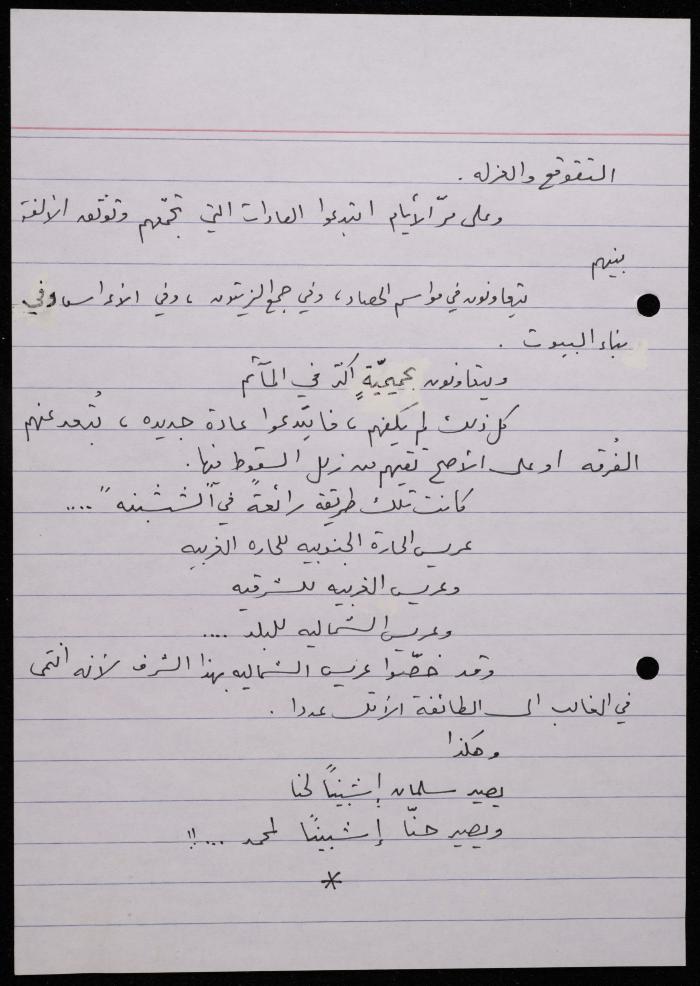 التقوقع والعزله .
وعلى مرّ الأيام ابتدعوا العادات التي تجمّعهم وتوثّق الألفة
بينهم
يتعاونون في مواسم الحصاد، وفي جمع الزيتون ، وفي الأعراس وفي
بناء البيوت .
ويتعاونون بحميميّةٍ أكثر في المآتم
كل ذلك لم يكفهم ، فابتدعوا عادة جديده ، تُبعد عنهم
الفُرقه او على الأصح تقيهم من زلل السقوط فيها .
كانت تلك طريقة رائعةً في "الششبنه" ....
عريس الحارة الجنوبيه للحاره الغربيه
وعريس الغربيه للشرقيه
وعريس الشماليه للبلد ....
وقد خصّوا عريس الشماليه بهذا الشرف لأنه انتمى
في الغالب الى الطائفة الأقل عددا .
وهكذا
يصير سلمان إشبينًا لحنا
ويصير حنّا إشبينًا لمحمد ...!!
*